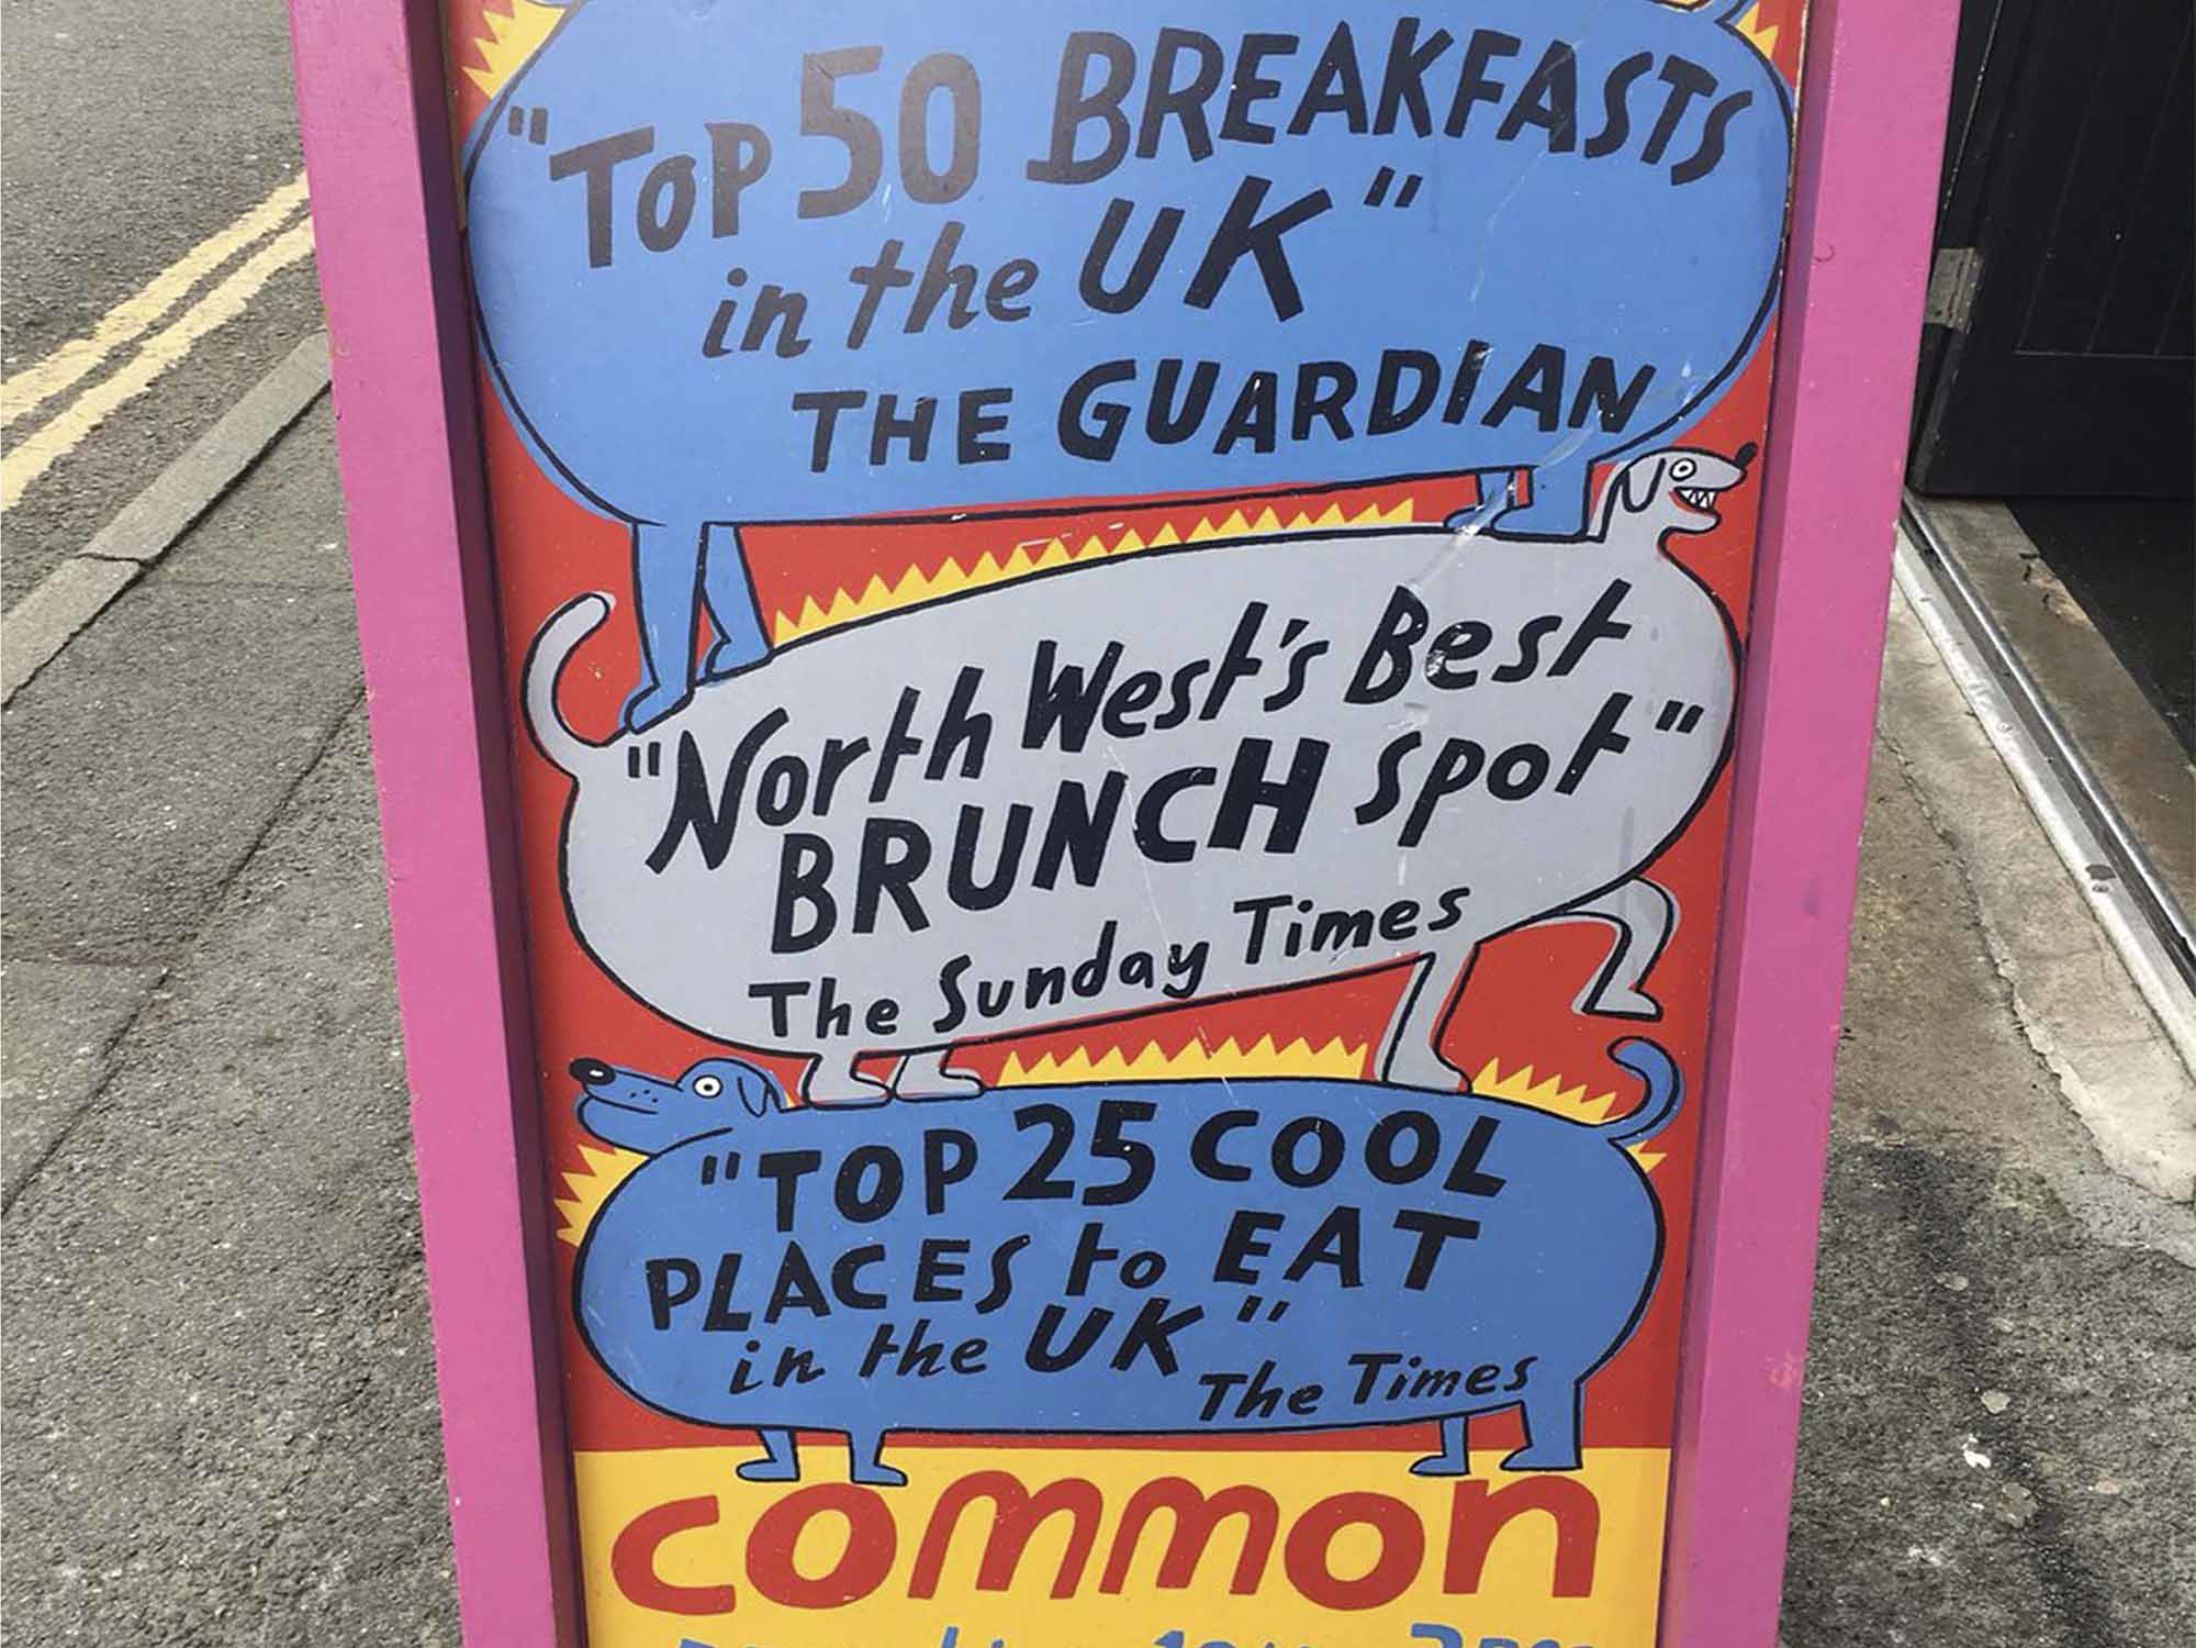 "Top 50 BREAKFASTS
in the UK"
THE GUARDIAN
"North West's Best
BRUNCH spot"
The Sunday Times
"TOP 25 COOL
PLACES to EAT
in the UK"
The Times
common